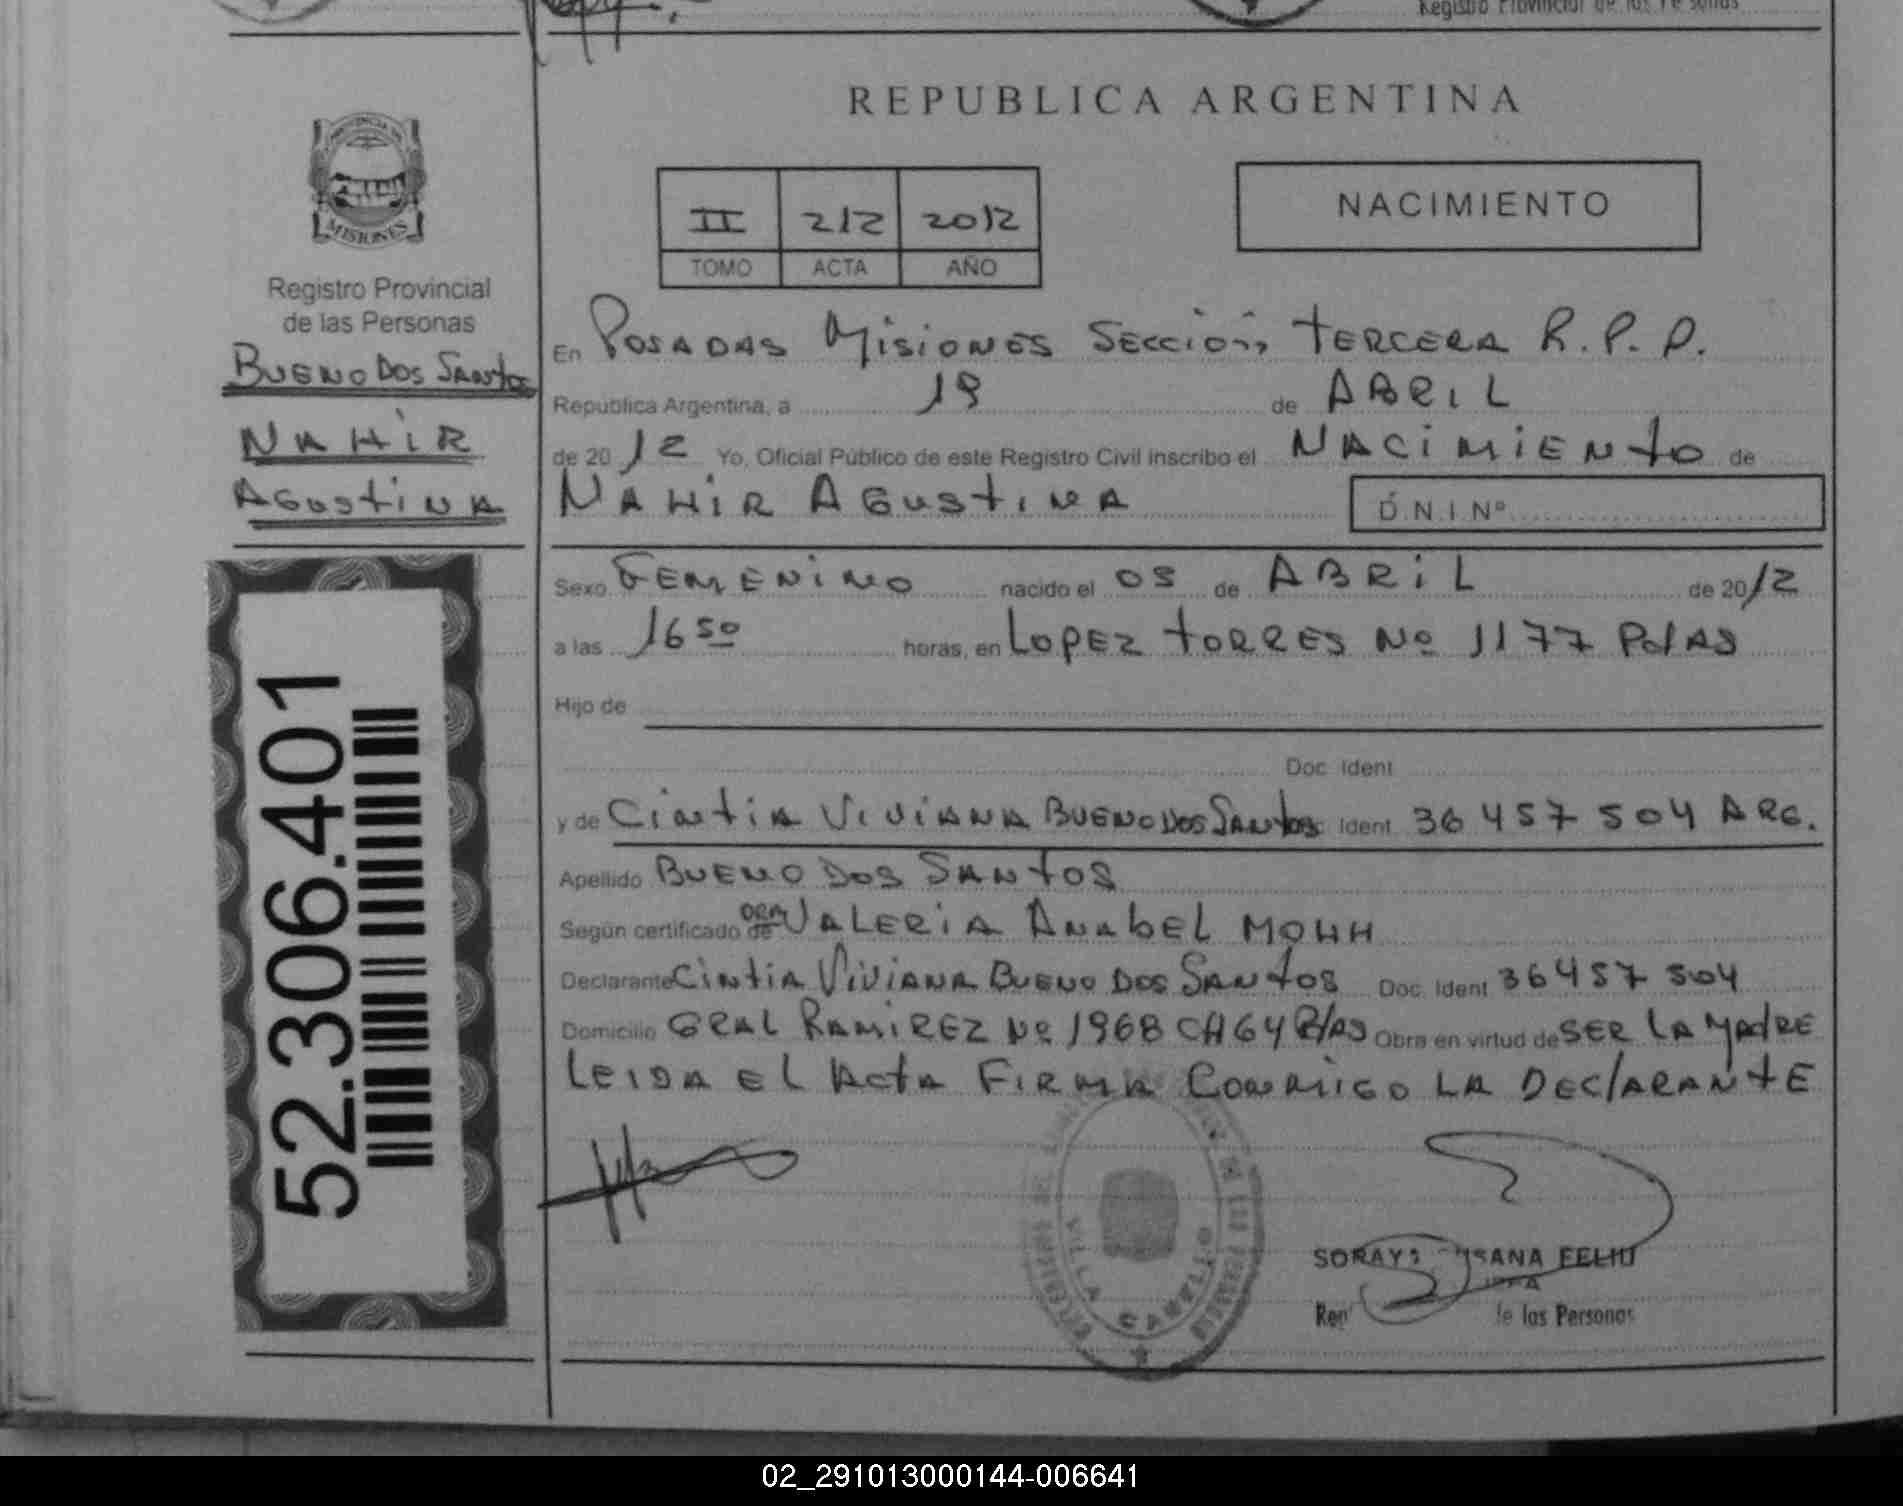 Registro Provincial de las Personas
REPUBLICA ARGENTINA
PROVINCIA DE
MISIONES
Registro Provincial
de las Personas
BUENO DOS SANTOS
NAHIR
AGUSTINA
52.306.401
II 212 2012
TOMO ACTA AÑO
NACIMIENTO
En POSADAS MISIONES SECCIÓN TERCERA R.P.P.
Republica Argentina, a 19 de ABRIL
de 2012 Yo, Oficial Público de este Registro Civil inscribo el NACIMIENTO de
NAHIR AGUSTINA D.N.I.Nº
Sexo FEMENINO nacido el 05 de ABRIL de 2012
a las 16 50 horas, en LOPEZ TORRES Nº 1177 PdAS
Hijo de
Doc. Ident
y de CINTIA VIVIANA BUENO DOS SANTOS Ident 36 457 504 ARG.
Apellido BUENO DOS SANTOS
Según certificado de DRA VALERIA ANABEL MOHH
Declarante CINTIA VIVIANA BUENO DOS SANTOS Doc. Ident 36 457 504
Domicilio GRAL RAMIREZ Nº 1968 CH 64 P/AS Obra en virtud de SER LA MADRE
LEIDA EL ACTA FIRMA CONMIGO LA DECLARANTE
VILLA CABELLO
SORAYA SUSANA FELIU
de las Personas
02_291013000144-006641